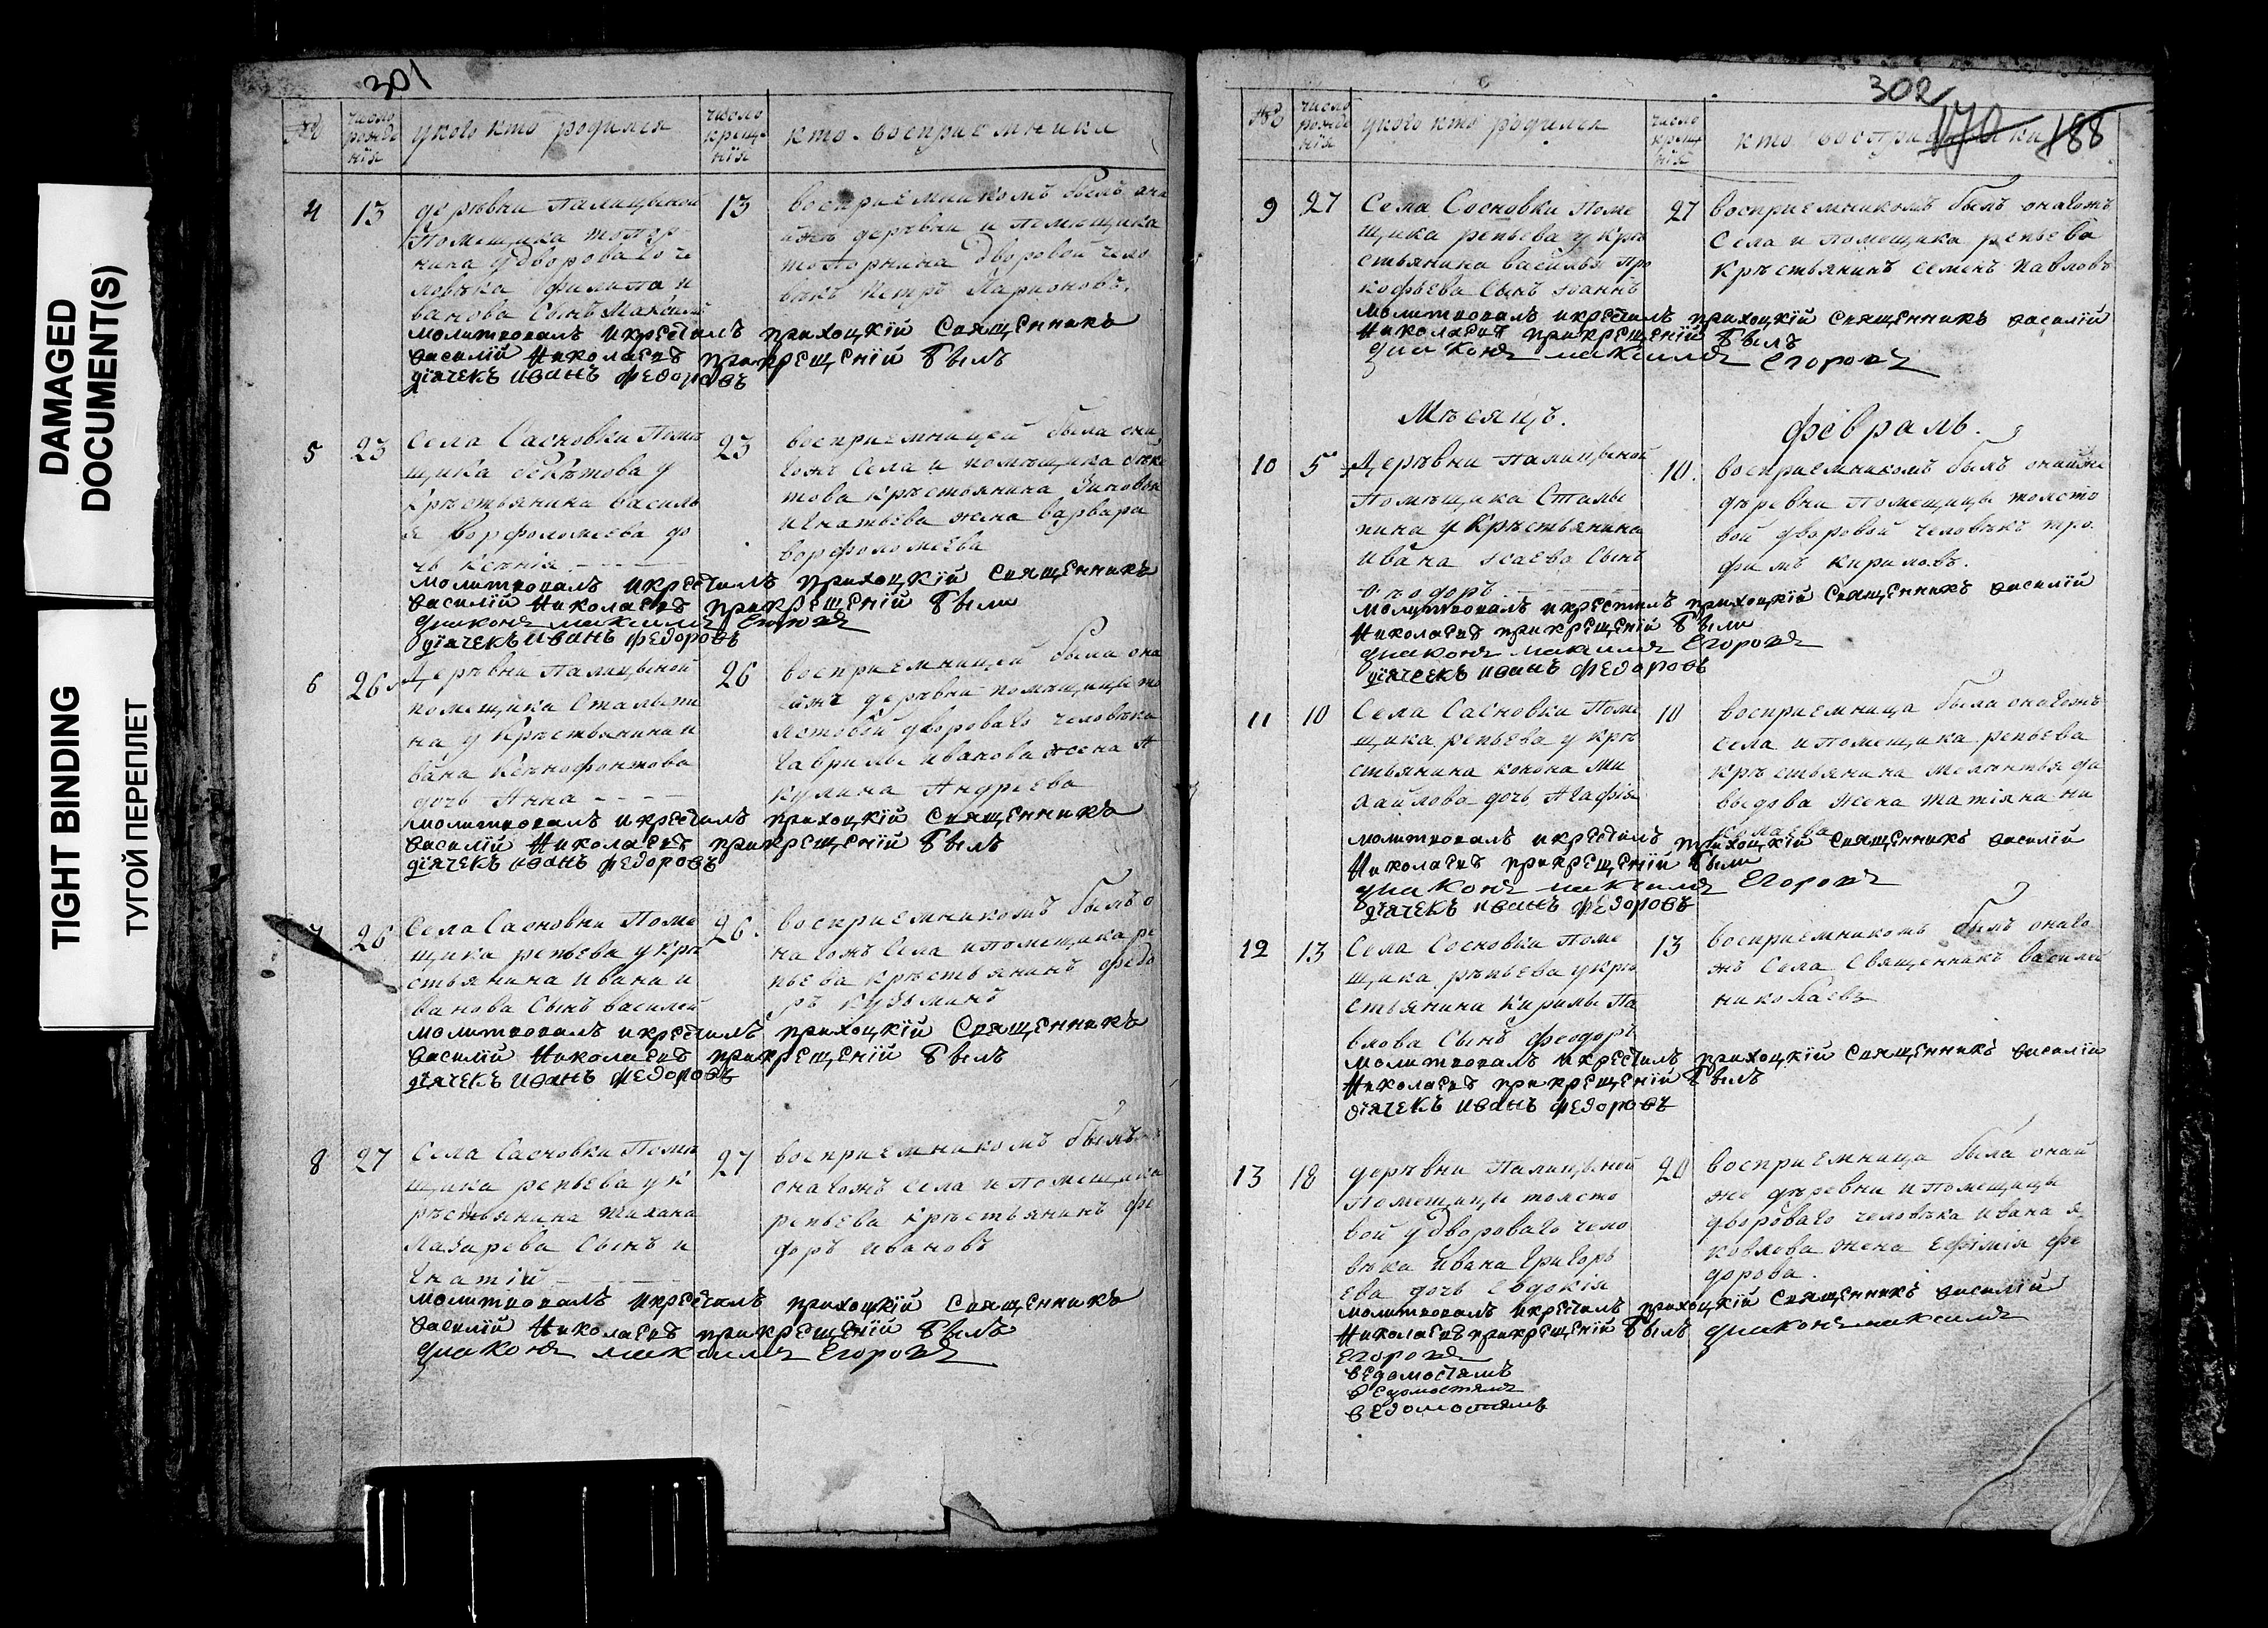 DAMAGED
DOCUMENT(S)
TIGHT BINDING
ТУГОЙ ПЕРЕПЛЕТ
301
№
число рожде нїя
у кого кто родился
число креще нїя
кто восприемники
4 13
деревни Палицыной
Помещика топор
нина у дворовало че
ловѣка Филипа и
ванова Сынъ Максимъ
13
восприемникомъ былъ она
йже деревни и помещика
топорнина дворовой чело
векъ Петръ Ларионовъ.
молитвовалъ икрестилъ приходцкїй Священникъ
василїй Николаевъ прикрещенїй былъ
дїячекъ иванъ федоровъ
5 23
Села Сасновки Помѣ
щика бекѣтова у
крѣстьянина василь
я Ворфоломеева до
чь Ксенїя
23
восприемницей была она
гожъ Села и помѣщика бѣке
това крѣстьянина Зиновья
игнатьева жена варвара
ворфоломѣева
молитвовалъ икрестилъ приходцкїй Священникъ
василїй Николаевъ прикрещенїй были
диаконъ максимъ Егоровъ
дїячекъ иванъ федоровъ
6 26
Деръвни Палицыной
помещика Сталыпи
на у крѣстьянина и
вана Ксенофонтова
дочь Анна
26
восприемницей была она
ейже деръвни помѣщице то
лстовой двороваго человѣка
Гаврилы иванова жена А
кулина Андреева
молитвовалъ икрестилъ приходцкїй Священникъ
василїй Николаевъ прикрещенїй былъ
дїячекъ иванъ федоровъ
7 26
Села Сасновки Поме
щика репьева у крѣ
стьянина ивана и
ванова Сынъ василей
26.
восприемникомъ былъ о
нагожъ Села и помещика ре
пьева крѣстьянинъ федо
ръ кузьминъ
молитвовалъ икрестилъ приходцкїй Священникъ
василїй Николаевъ прикрещенїй былъ
дїячекъ иванъ федоровъ
8 27
Села Сасновки Помѣ
щика репьева у к
рѣстьянина тихана
Лазарева Сынъ и
гнатїй
27
восприемникомъ былъ
онагожъ села и помещика
репьева крѣстьянинъ фе
доръ ивановъ
молитвовалъ икрестилъ приходцкїй Священникъ
василїй Николаевъ прикрещенїй былъ
диаконъ максимъ Егоровъ
302
170 188
№
число рожде нїя
у кого кто родился
число крещ нїя
кто восприемники
9 27
Села Сосновки Поме
щика репьева у крѣ
стьянина василья про
кофьева Сынъ Iоаннъ
27
восприемникомъ былъ онагожъ
Села и помещика репьева
крѣстьянинъ семенъ павловъ
молитвовалъ икрестилъ приходцкїй Священникъ василїй
Николаевъ прикрещенїй былъ
диаконъ максимъ Егоровъ
Мѣсяцъ. февраль.
10 5
Деръвни Палицыной
Помѣщика Сталы
пина у крѣстьянина
ивана исаева Сынъ
Феодоръ
10.
восприемникомъ былъ онойже
дѣревни Помещицы толсто
вой дворовой человѣкъ тро
фимъ кириловъ.
молитвовалъ икрестилъ приходцкїй Священникъ василїй
Николаевъ прикрещенїй были
диаконъ максимъ Егоровъ
дїячекъ иванъ федоровъ
11 10
Села Сасновки Поме
щика репьева у крѣ
стьянина конона ми
хайлова дочь Агафїя
10
восприемница была онагожъ
села и помещика репьева
крѣстьянина мелѣнтья да
выдова жена татїяна ни
колаева
молитвовалъ икрестилъ приходцкїй Священникъ василїй
Николаевъ прикрещенїй были
диаконъ максимъ Егоровъ
дїячекъ иванъ федоровъ
12 13
Села Сосновки Поме
щика рѣпьева у крѣ
стьянина Кирилы Па
влова Сынъ феодоръ
13
восприемникомъ былъ онаго
жъ Села Священникъ василей
николаевъ
молитвовалъ икрестилъ приходцкїй Священникъ василїй
Николаевъ прикрещенїй былъ
дїячекъ иванъ федоровъ
13 18
деръвни Палицыной
Помещицы толсто
вой у двороваго чело
вѣка ивана Григорь
ева дочь Евдокїя
20
восприемница была оной
же дѣревни и помещицы
двороваго человѣка ивана я
ковлова жена Ефїмїя фе
дорова.
молитвовалъ икрестилъ приходцкїй Священникъ василїй
Николаевъ прикрещенїй былъ диаконъ максимъ
Егоровъ
ведомостямъ
ведомостямъ
ведомостямъ